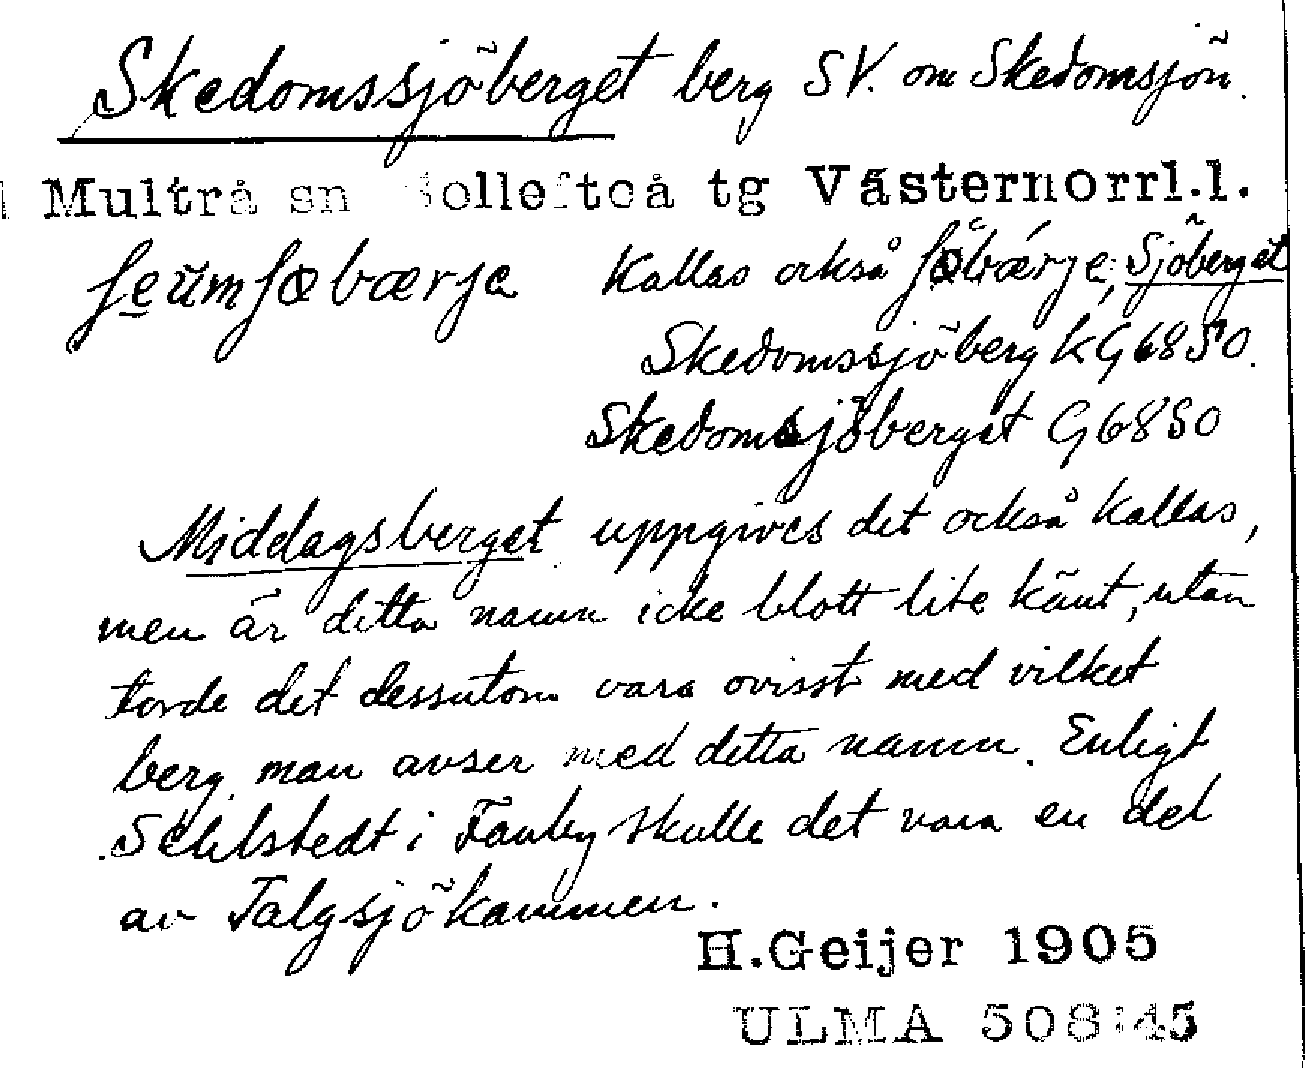 Skedomssjöberget berg SV. om Skedomsjön.
Multrå sn Sollefteå tg Västernorrl.l.
ʃeu̇mʃøbærʃe Kallas också ʃøbærje, Sjöberget
Skedomssjöberg k G68SO.
Skedomsjöberget G68SO
Middagsberget uppgives det också kallas,
men är detta namn icke blott lite känt, utan
torde det dessutom vara ovisst med vilket
berg man avser med detta namn. Enligt
Sehlstedt i Tanby skulle det vara en del
av Talgsjökammen.
H.Geijer 1905
ULMA 508:45